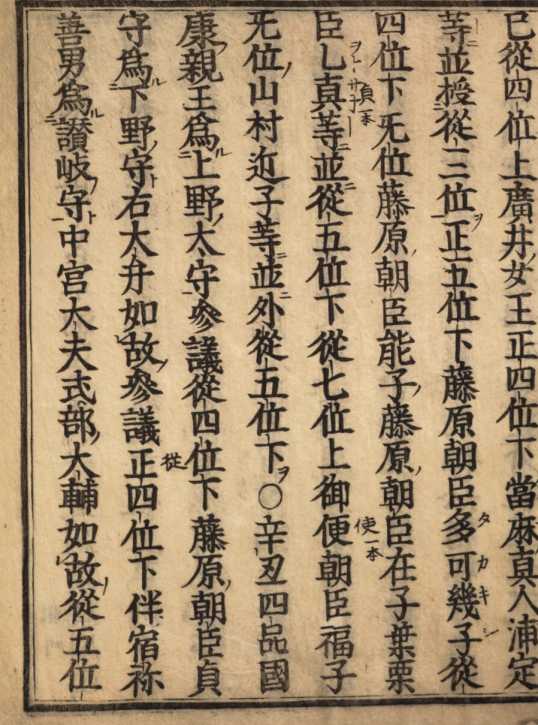 已從四位上廣井女王正四位下當麻真人浦定
等並授從三位正五位下藤原朝臣多可幾子從
四位下无位藤原朝臣能子藤原朝臣在子葉栗
臣乙真等並從五位下從七位上御便朝臣福子
无位山村近子等並外從五位下○辛丑四品國
康親王爲上野太守參議從四位下藤原朝臣貞
守爲下野守右大弁如故參議正四位下伴宿祢
善男爲讃岐守中宮大夫式部大輔如故從五位